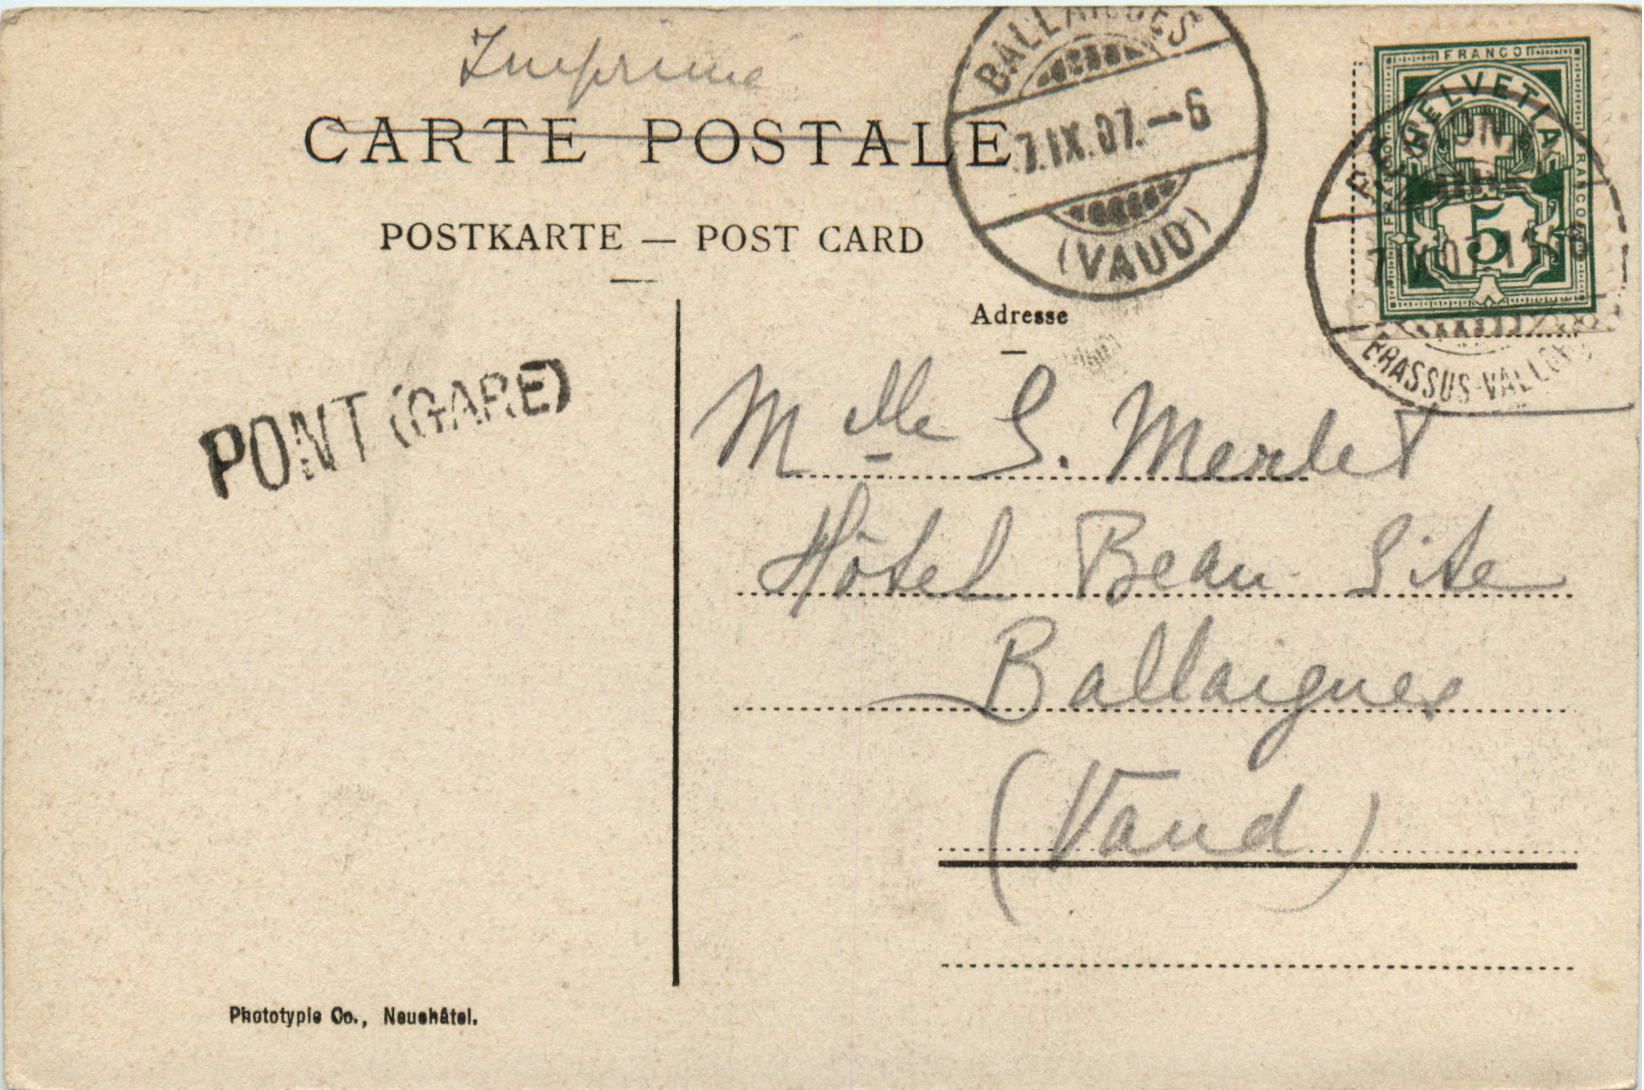 Imprimé
CARTE POSTALE
POSTKARTE — POST CARD
BALLAIGUES
7.IX.07.—6
(VAUD)
FRANCO
HELVETIA
FRANCO
5
BRASSUS-VALLORBE
PONT (GARE)
Adresse
Mlle S. Merlet
Hôtel Beau-Site
Ballaigues
(Vaud)
Phototypie Co., Neuchâtel.